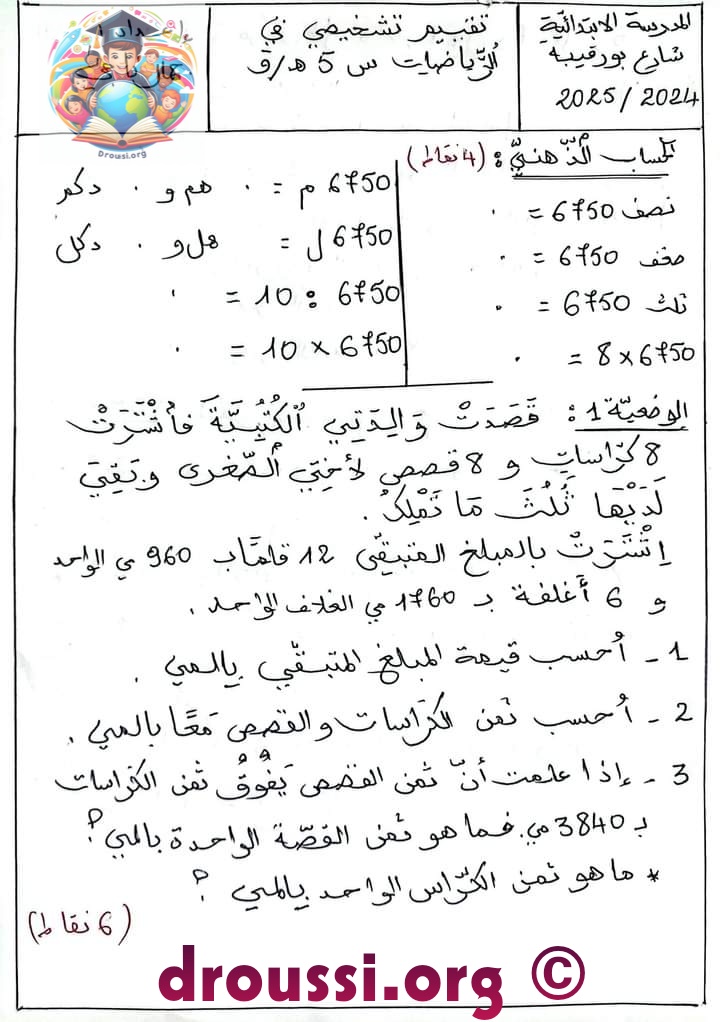 المدرسة الابتدائية
شارع بورقيبة
2025/2024
تقييم تشخيصي في
الرّياضيات س 5 هـ/ق
Droussi.org
الحساب الذّهنيّ : (4 نقاط)
نصف 6750 = .
ضعف 6750 = .
ثلث 6750 = .
8 x 6750 = .
6750 م = . هم و . دكم
6750 ل = هل و . دكل
6750 : 10 = .
6750 x 10 = .
الوضعيّة 1 : قَصَدَتْ وَالِدَتِي الْكُتُبِيَّةَ فَاشْتَرَتْ
8 كرّاسات و 8 قصص لأختي الصّغرى و بَقِيَ
لَدَيْهَا ثُلُثَ مَا تَمْلِكُ .
اِشْتَرَتْ بالمبلغ المتبقّي 12 قلمًا بـ 960 مي الواحد
و 6 أغلفة بـ 1760 مي الغلاف الواحد .
1 - أُحسب قيمة المبلغ المتبقّي بالمي .
2 - أُحسب ثمن الكرّاسات والقصص مَعًا بالمي .
3 - إذا علمت أنّ ثمن القصص يَفُوقُ ثمن الكرّاسات
بـ 3840 مي. فما هو ثمن القصّة الواحدة بالمي ؟
* ما هو ثمن الكرّاس الواحد بالمي ؟
(6 نقاط)
droussi.org ©